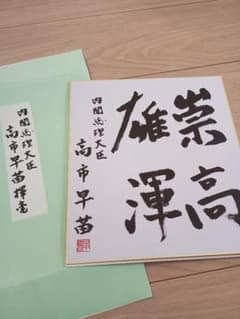 崇高
雄渾
内閣総理大臣
高市早苗
内閣総理大臣
高市早苗揮毫